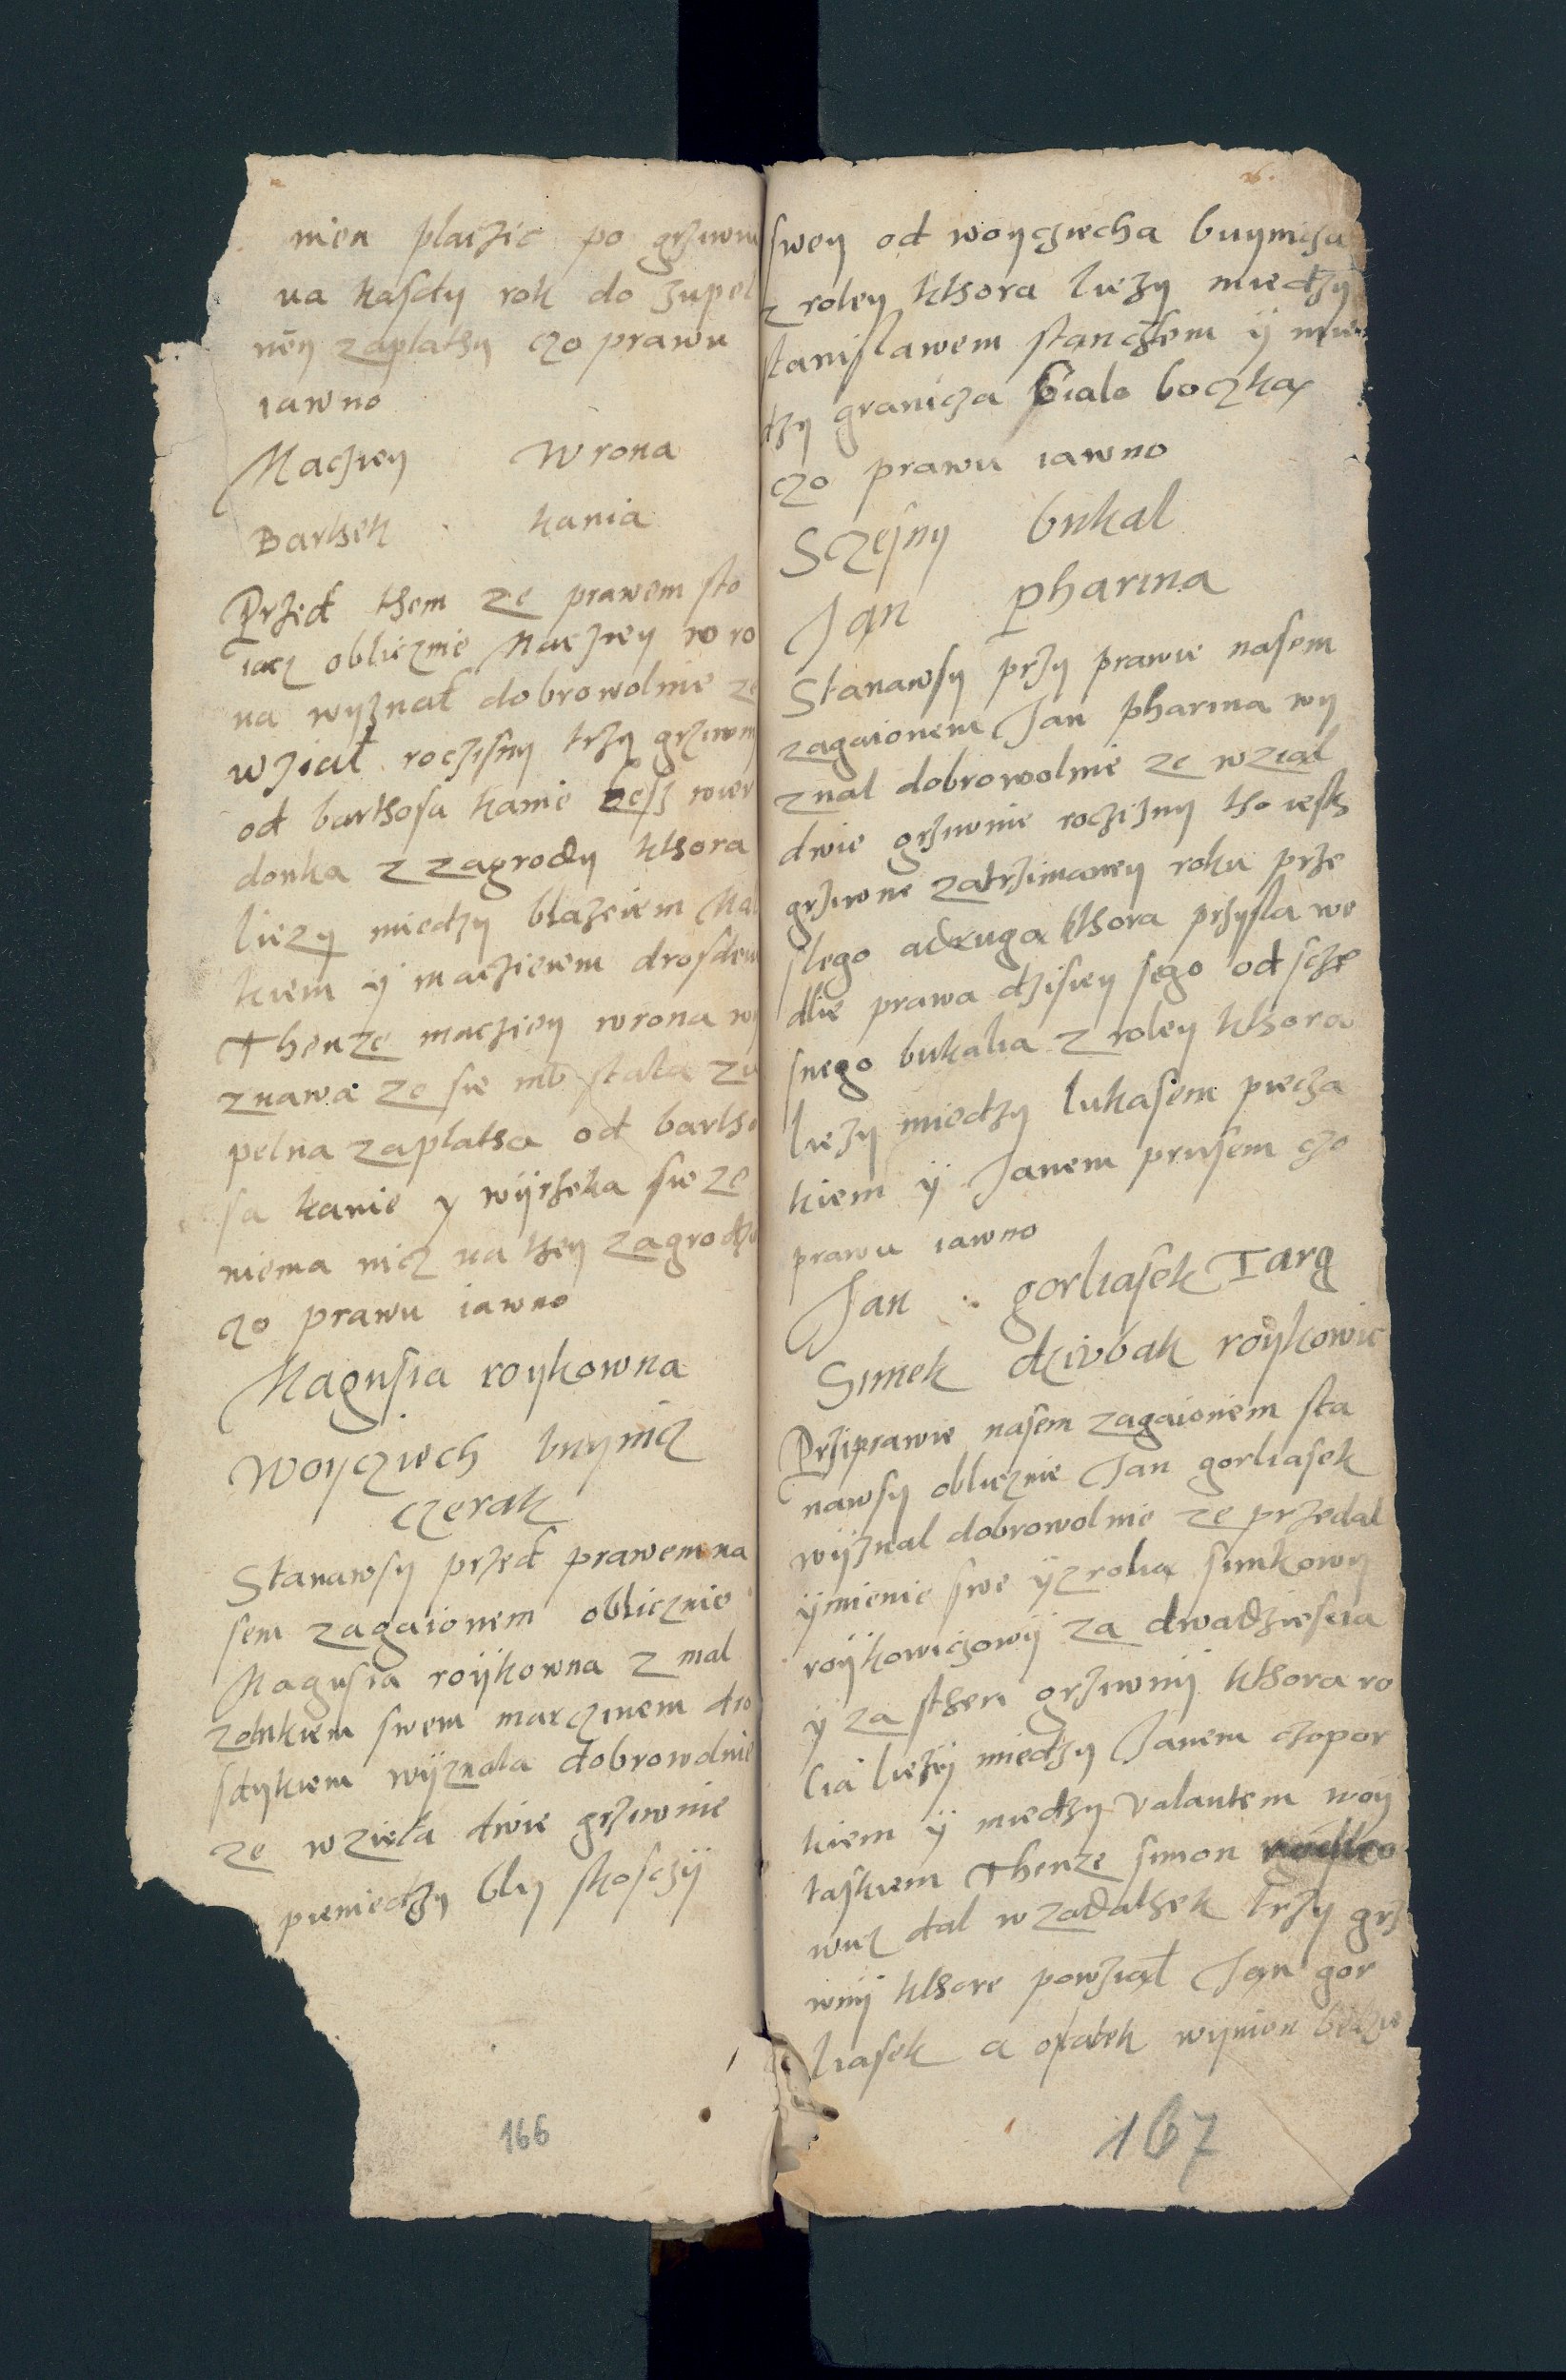 nien płaczic po grziwni
na kasdy rok do zupel
ney zaplathy czo prawu
iawno
Macziey Wrona
Barthek kania
Przed them ze prawem sto
iacz oblicznie Macziey wro
na wyznał dobrowolnie ze
wział roczisny trzy grziwny
od barthosa kanie besz wier
donka z zagrody kthora
liezy miedzy blazeiem Mal
kiem y maczieiem drosdem
Thenze macziey wrona wy
znawa ze sie mu stała zu
pełna zapłatha od bartho
sa kanie y wyrzeka sie ze
niema nicz na they zagrodzie
czo prawu iawno
Magusia roykowna
Woyciech buynicz
czerak
Stanawsy przed prawem na
sem zagaionem oblicznie
Magusia roykowna z mal
zonkiem swem marczinem dro
sdykiem wyznała dobrowolnie
ze wzieła dwie grziwnie
pieniedzy bliskosczy
166
swey od woyciecha buynicza
z roley kthora liezy miedzy
stanisławem stanczkem y mie
dzy granicza białoboczka
czo prawu iawno
Sczesny bukal
Jan pharina
Stanawsy przy prawie nasem
zagaionem Jan pharina wy
znal dobrowolnie ze wzial
dwie grziwnie roczizny tho iesth
grziwne zatrzimaney roku prze
slego a druga kthora przysla we
dlie prawa dzisieysego od scze
snego bukalia z roley kthora
liezy miedzy lukasem piecza
kiem y Janem prusem czo
prawu iawno
Jan gorliasek Targ
Simek dziubak roykowic
Przi prawie nasem zagaionem sta
nawsy oblicznie Jan gorliasek
wyznal dobrowolnie ze przedal
ymienie swe y z rolia simkowy
roykowiczowy za dwadziescia
y za sthery grziwny kthora ro
lia liezy miedzy Janem czopor
kiem y miedzy valantem woy
taskiem Thenze simon
wicz dal w zadathek trzy grz
wny kthore powział Jan gor
liasek a ostatek wynien bedzie
167